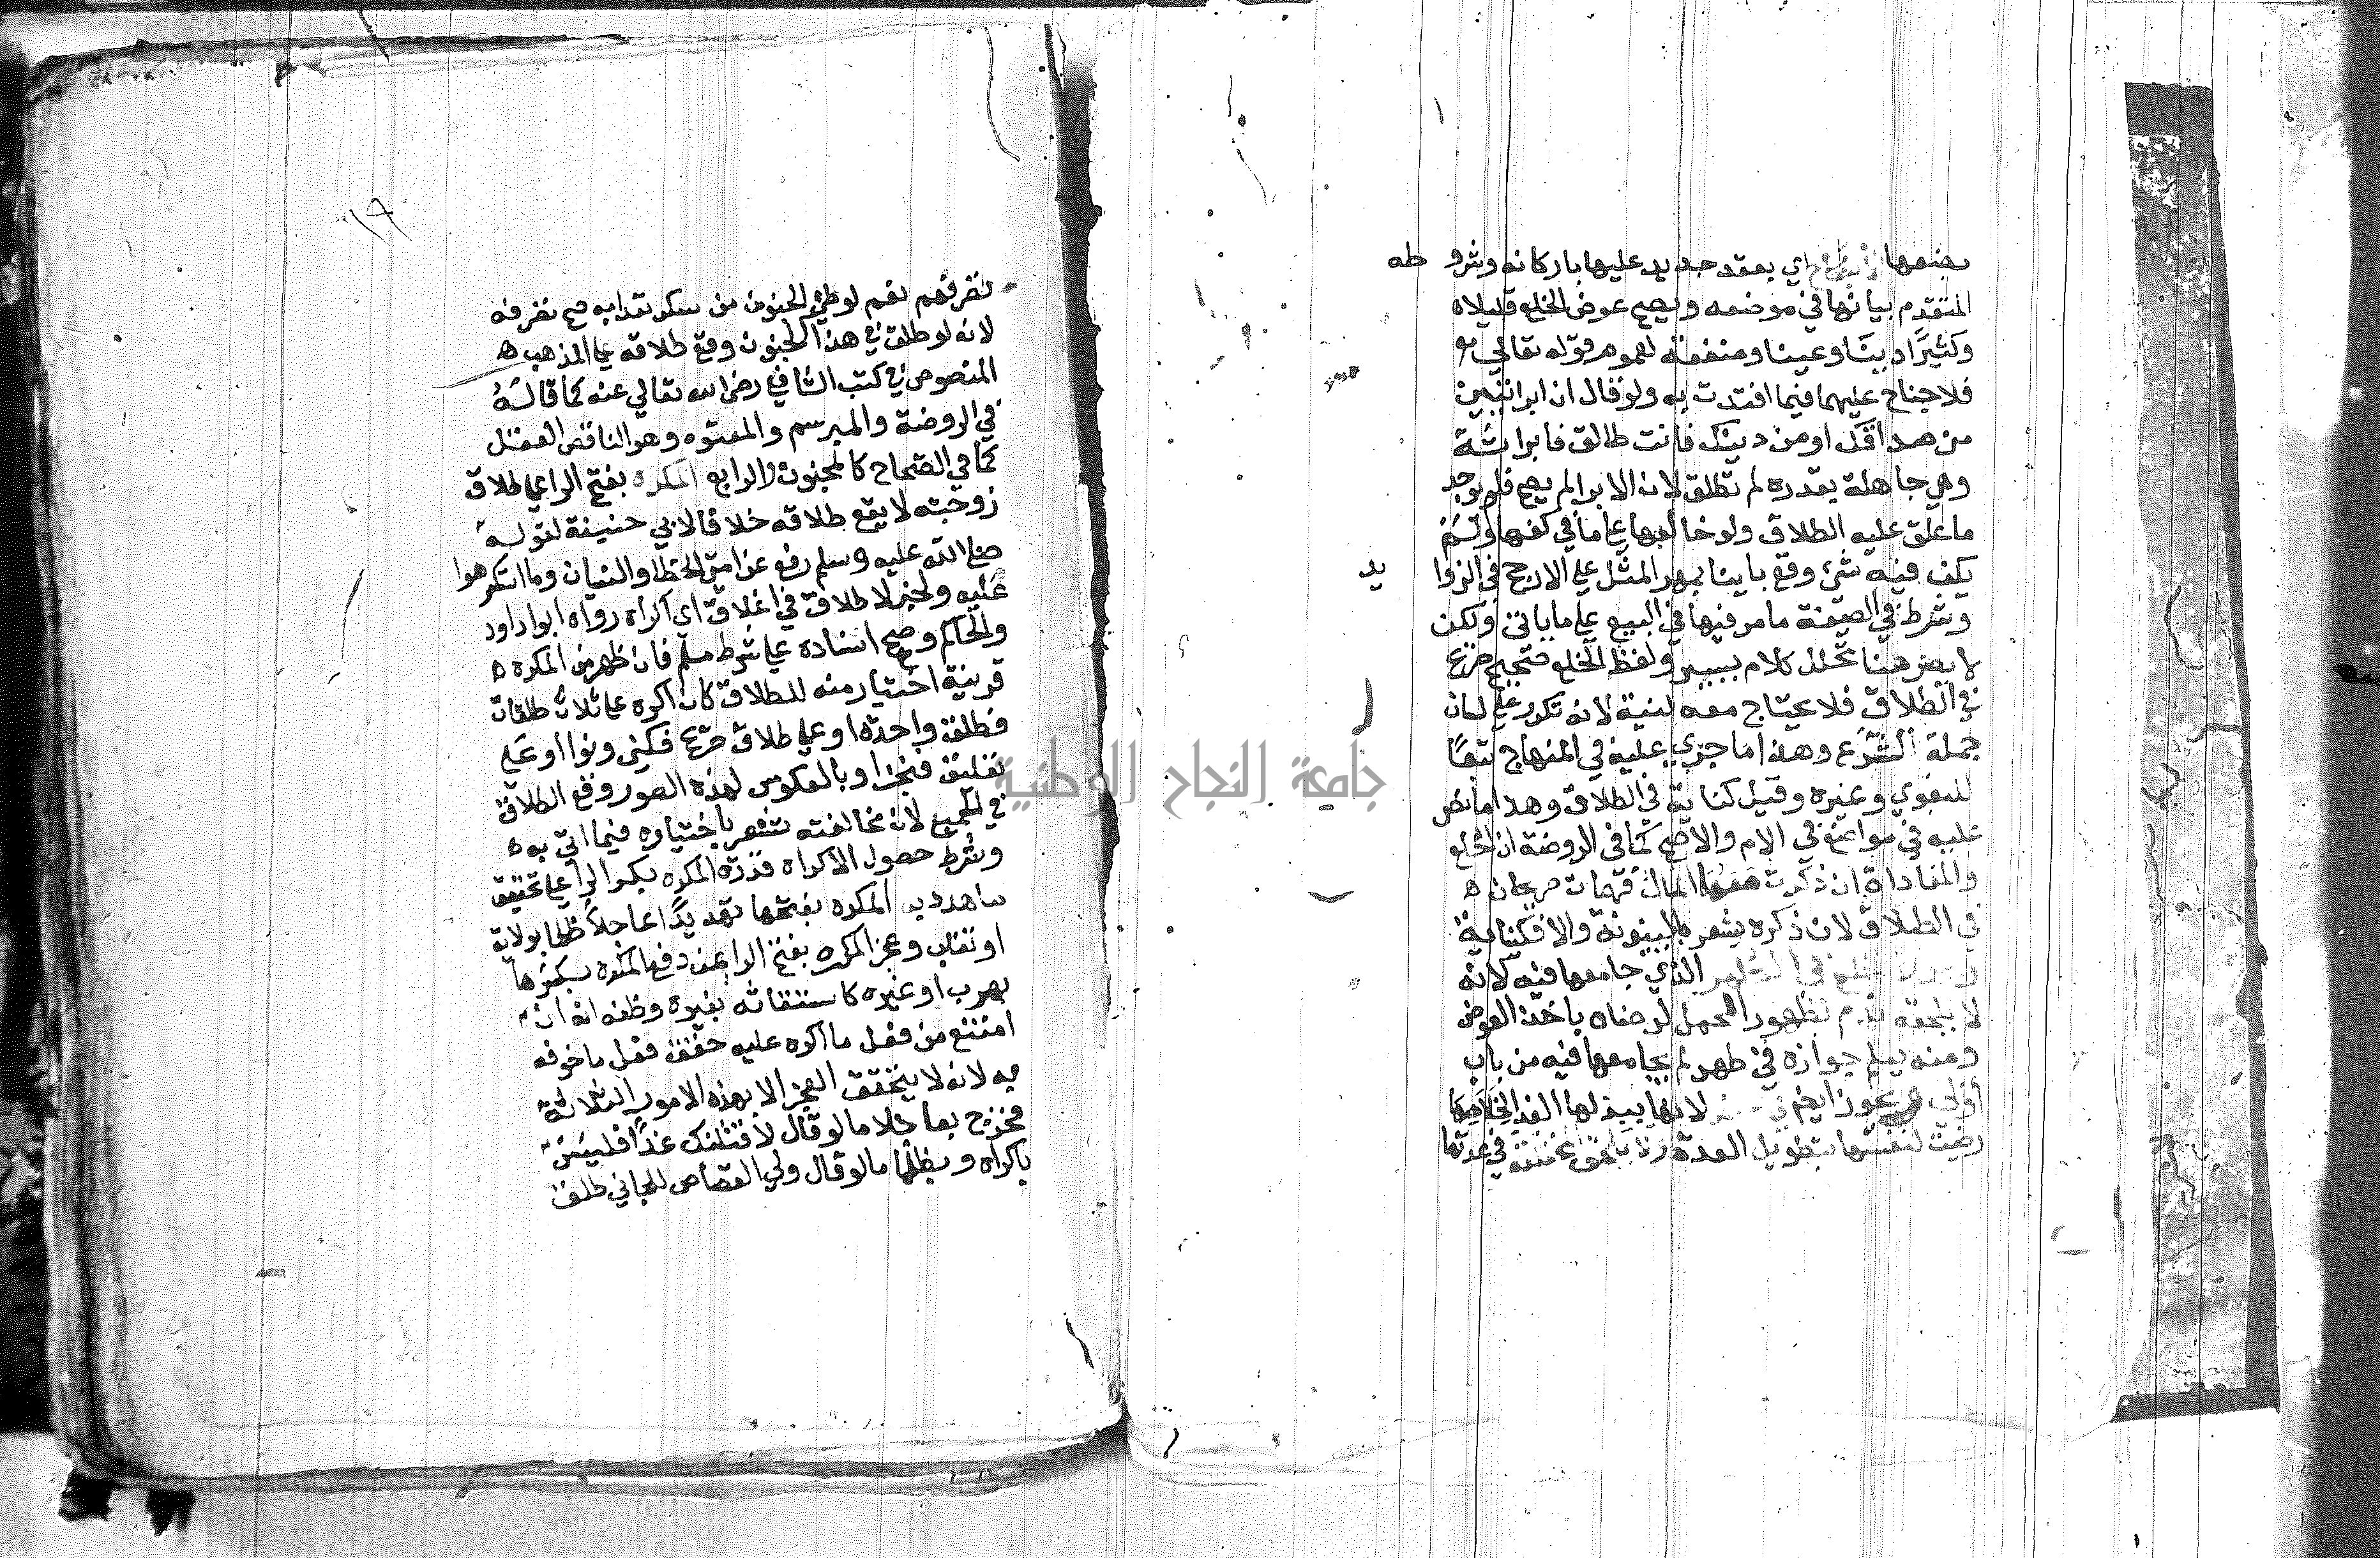 بضعها اي بعقد جديد عليها باركانه وشروطه
المتقدم بيانها في موضعه ويصح عوض الخلع قليلاه
وكثيرا دينا وعينا ومنفعة لعموم قوله تعالي
فلا جناح عليهما فيما افتدت به ولو قال ان ابراتيني
من صداقك او من دينك فانت طالق فابراته
وهي جاهلة بقدره لم تطلق لان الابرا لم يصح فلم يوجد
ما علق عليه الطلاق ولو خالعها علي ما في كفها ولم
يكن فيه شئ وقع باينا بمهر المثل علي الارجح في الزوا يد
وشرط في الصيغة ما مر فيها في البيع علي ما ياتي ولكن
لا يضر هنا تخلل كلام يسير ولفظ الخلع صريح
في الطلاق فلا يحتاج معه لنية لانه تكرر علي لسان
حملة الشرع وهذا ما جري عليه في المنهاج تبعا
للبغوي وغيره وقيل كناية في الطلاق وهذا ما نص
عليه في مواضع في الام والاصح كما في الروضة ان الخلع
والمفاداة ان ذكرت معهما المال فهما صريحان ه
في الطلاق لان ذكره يشعر بالبينونة والا فكناية
الذي جامعها فيه لانه
لا يلحقه ندم بظهور الحمل لرضاه باخذ العوض
ومنه يعلم جوازه في طهر لم يجامعها فيه من باب
اولي يجوز ايضا في لانها ببذلها الفدا لخلاصها
رضيت لنفسها بتطويل العدة في عدتها
١٩
تصرفهم نعم لو طرئ الجنون من سكر تعدا به صح تصرفه
لانه لو طلق في هذا الجنون وقع طلاقه علي المذهب ه
المنصوص في كتب الشافعي رضي الله تعالي عنه كما قاله
في الروضة والمبرسم والمعتوه وهو الناقص العقل
كما في الصحاح كالمجنون والرابع المكره بفتح الرا علي طلاق
زوجته لا يقع طلاقه خلافا لابي حنيفة لقوله
صلي الله عليه وسلم رفع عن امتي الخطا والنسيان وما استكرهوا
عليه ولخبر لا طلاق في اغلاق اي اكراه رواه ابوا داود
والحاكم وصحح اسناده علي شرط مسلم فان ظهر من المكره ه
قرينة اختيار منه للطلاق كان اكره علي ثلاث طلقات
فطلق واحدة او علي طلاق صريح فكني ونوا او علي
تعليق فنجز او بالعكوس لهذه الصور وقع الطلاق
في الجميع لان مخالفته تشعر باختياره فيما اتي به ه
وشرط حصول الاكراه قدرة المكره بكسر الرا علي تحقيق
ما هدد به المكره بفتحها تهديدا عاجلا ظلما بولاية
او تغلب وعجز المكره بفتح الرا عن دفع المكره بكسرها
بهرب او غيره كاستغاثة بغيره وظنه انه ان
امتنع من فعل ما اكره عليه حقق فعل ما خوفه
به لانه لا يتحقق العجز الا بهذه الامور الثلاثة
فخرج بعاجلا ما لو قال لاقتلنك غدا فليس
باكراه وبظلما ما لو قال ولي القصاص للجاني طلق
جامعة النجاح الوطنية